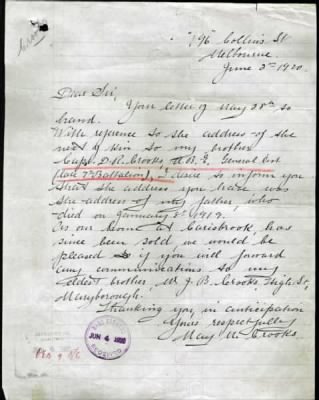 Crooks
796 Collins St
Melbourne
June 3rd 1920
Dear Sir,
Your letter of May 28th to
hand.
With reference to the address of the
next of kin to my brother
Capt. D. R. Crooks, General List
(late 7th Battalion), I desire to inform you
that the address you have was
the address of my father, who
died on January 8th 1919.
As our home at Carisbrook, has
since been sold, we would be
pleased if you will forward
any communications to my
eldest brother, Mr J. B. Crooks, High St,
Maryborough.
Thanking you in anticipation
Yours respectfully
May M. Crooks
BASE RECORDS
JUN 4 1920